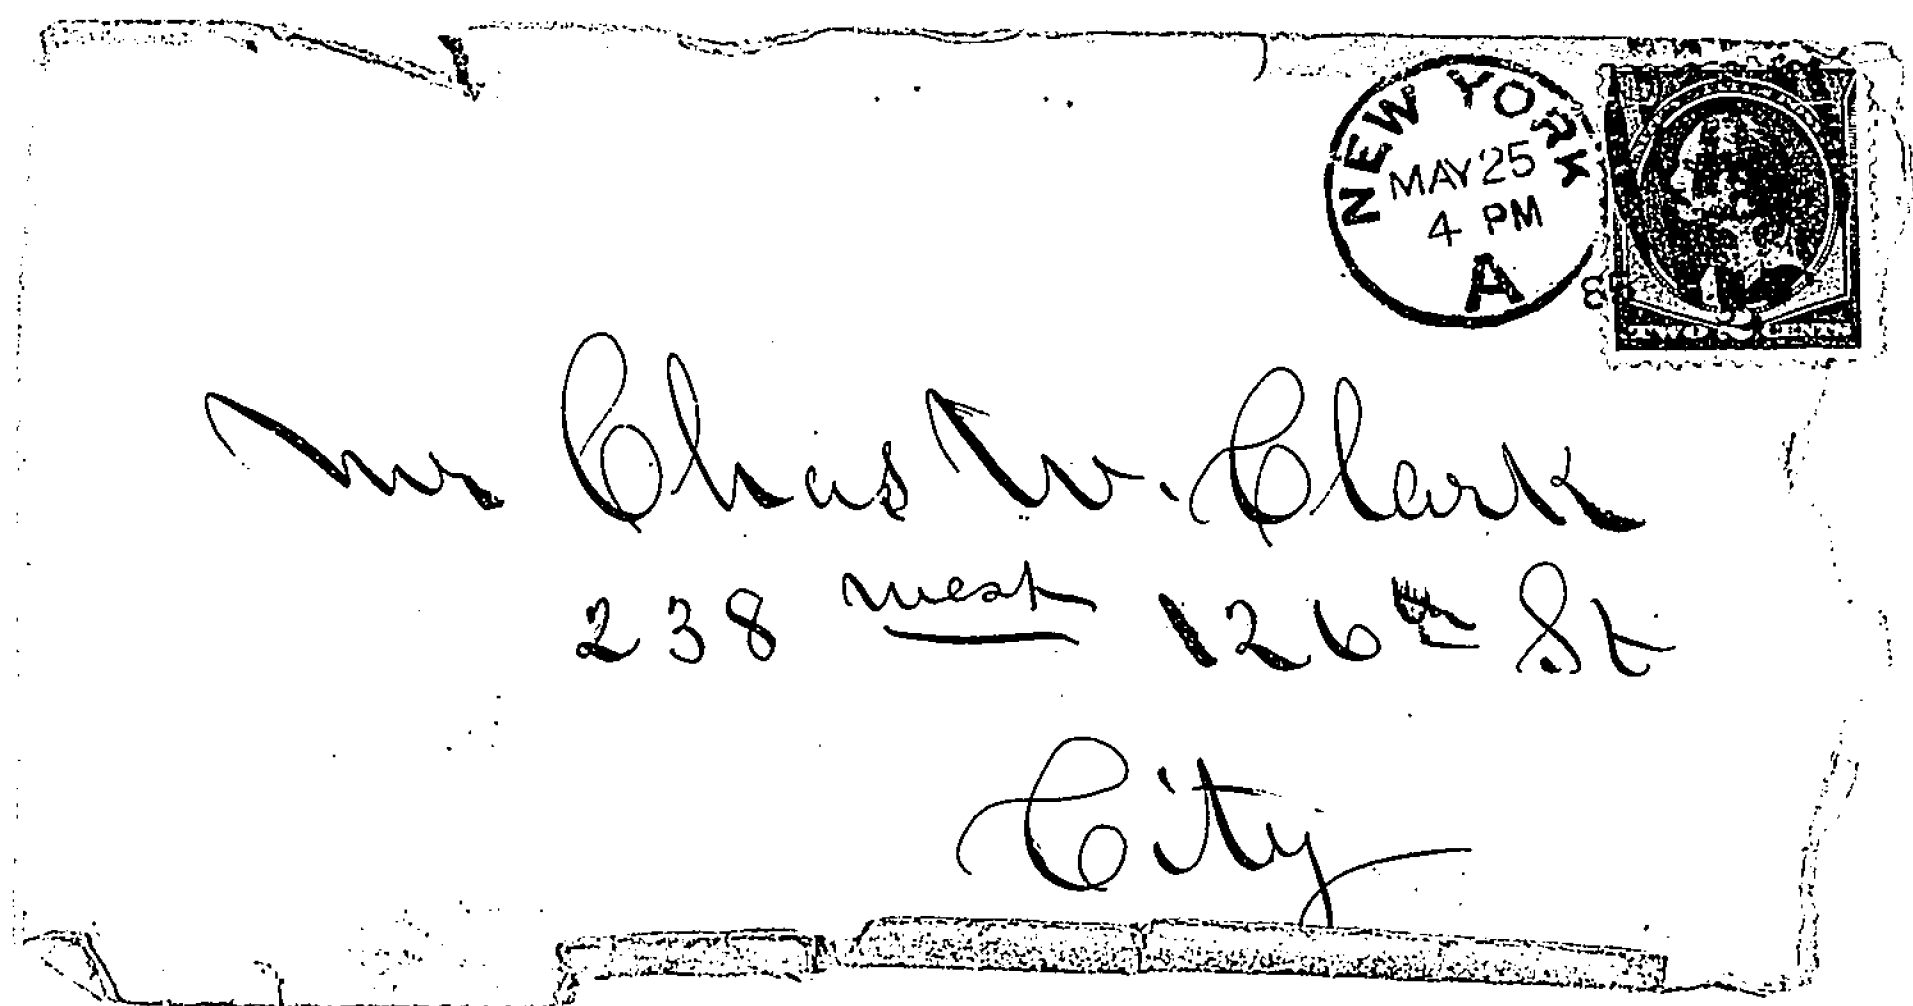 NEW YORK
MAY 25
4 PM
A
TWO 2 CENTS
Mr Chas W. Clark
238 West 126th St
City